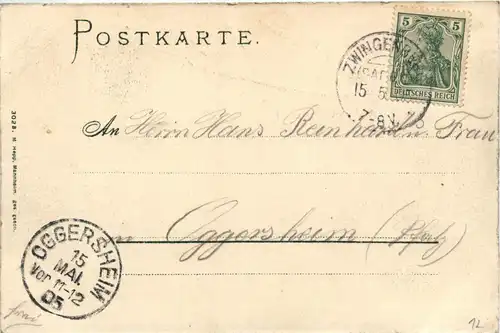 POSTKARTE.
5 5
DEUTSCHES REICH
ZWINGENB
15 5
7-8V.
An Herrn Hans Reinhard u. Frau
in Oggersheim (Pfalz)
OGGERSHEIM
15
MAI.
Vor 11-12
05
frei
12